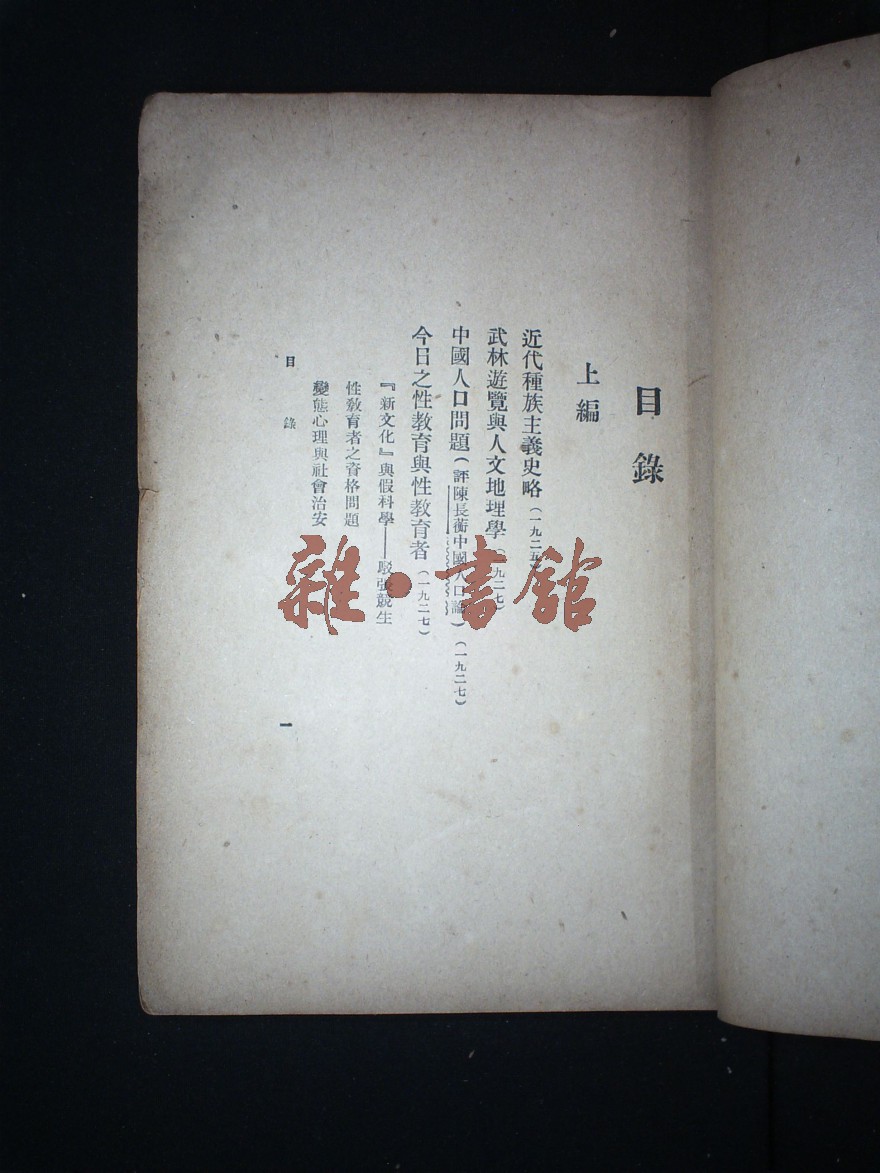 目錄
上編
近代種族主義史略（一九二五）
武林遊覽與人文地理學（一九二七）
中國人口問題（評陳長蘅中國人口論）（一九二七）
今日之性教育與性教育者（一九二七）
『新文化』與假科學——駁張競生
性教育者之資格問題
變態心理與社會治安
目錄
一
雜·書館